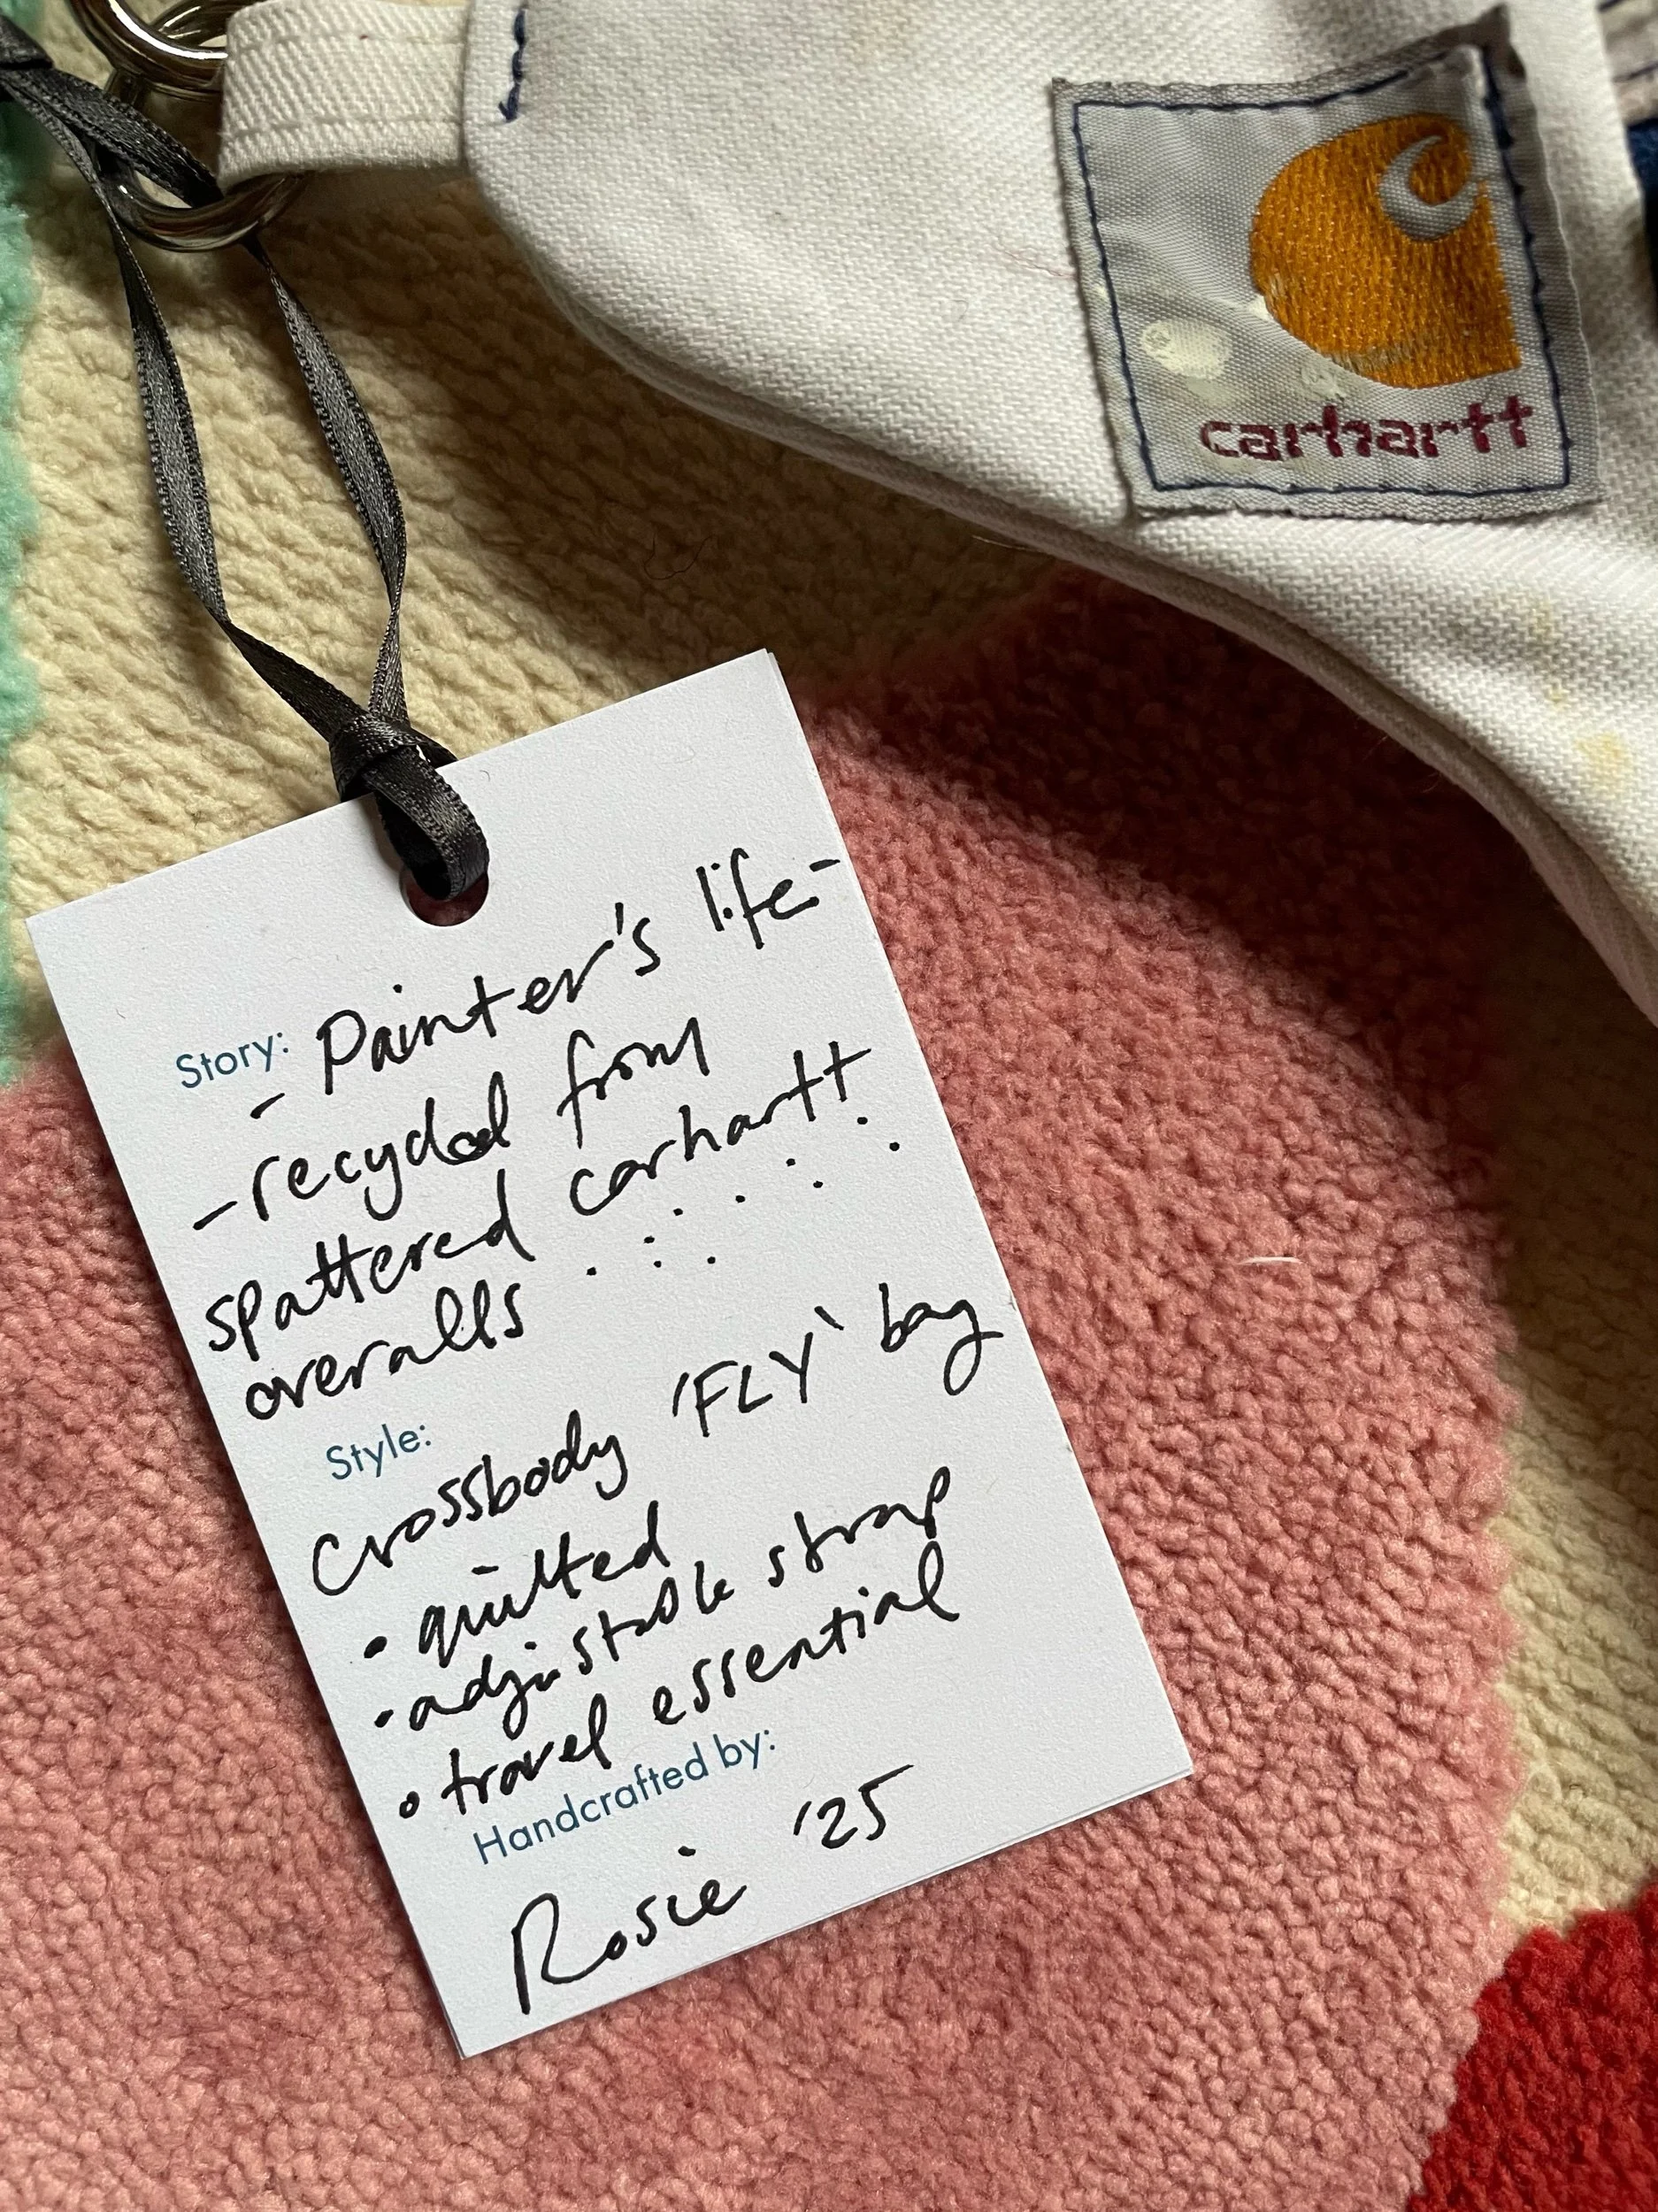 carhartt
Story: - Painter's life -
- recycled from
spattered carhartt
overalls
Style:
Crossbody 'FLY' bag
• quilted
• adjustable strap
• travel essential
Handcrafted by:
Rosie '25